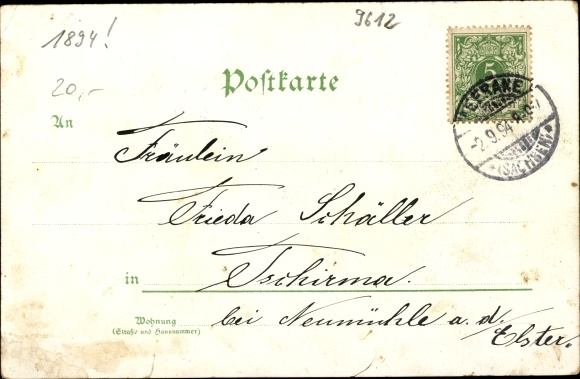 1894!
9612
20,-
Postkarte
5
MEERANE
-2.9.94.8-9V
(SACHSEN)
An
Fräulein
Frieda Schäller
in Tschirma.
Wohnung
(Straße und Hausnummer)
bei Neumühle a. d.
Elster.